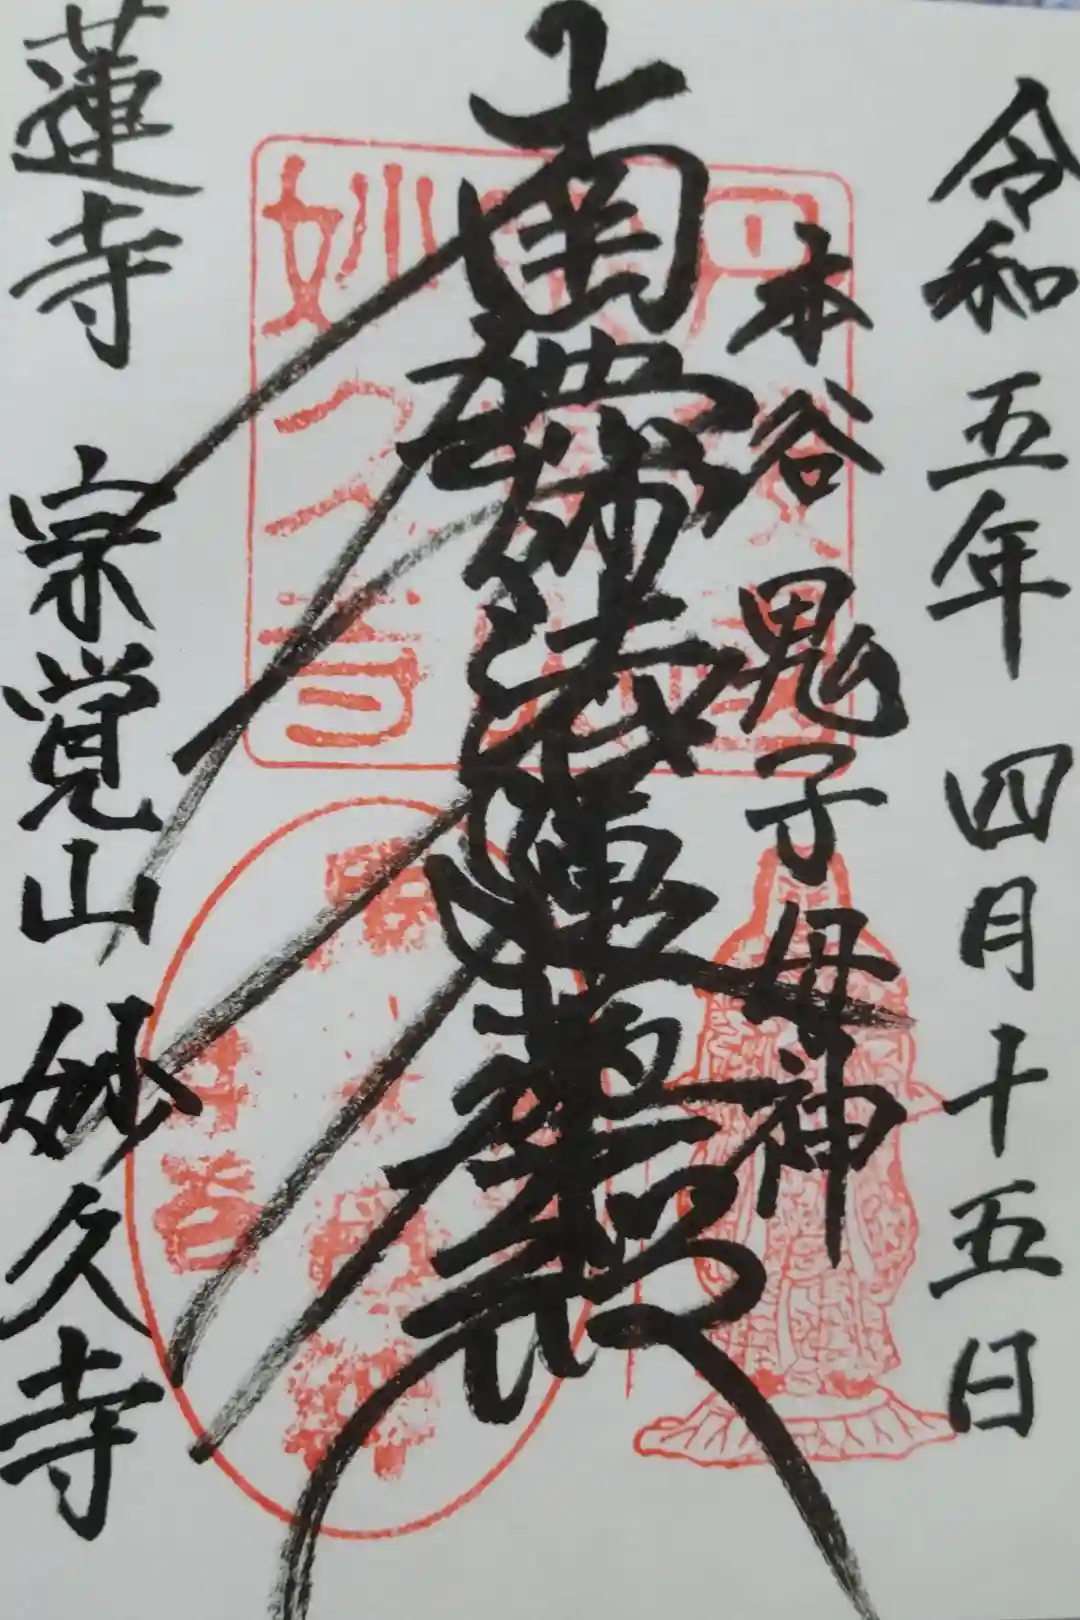 令和五年 四月十五日
本谷 鬼子母神
南無妙法蓮華経
蓮寺 宗覚山 妙久寺
妙久寺